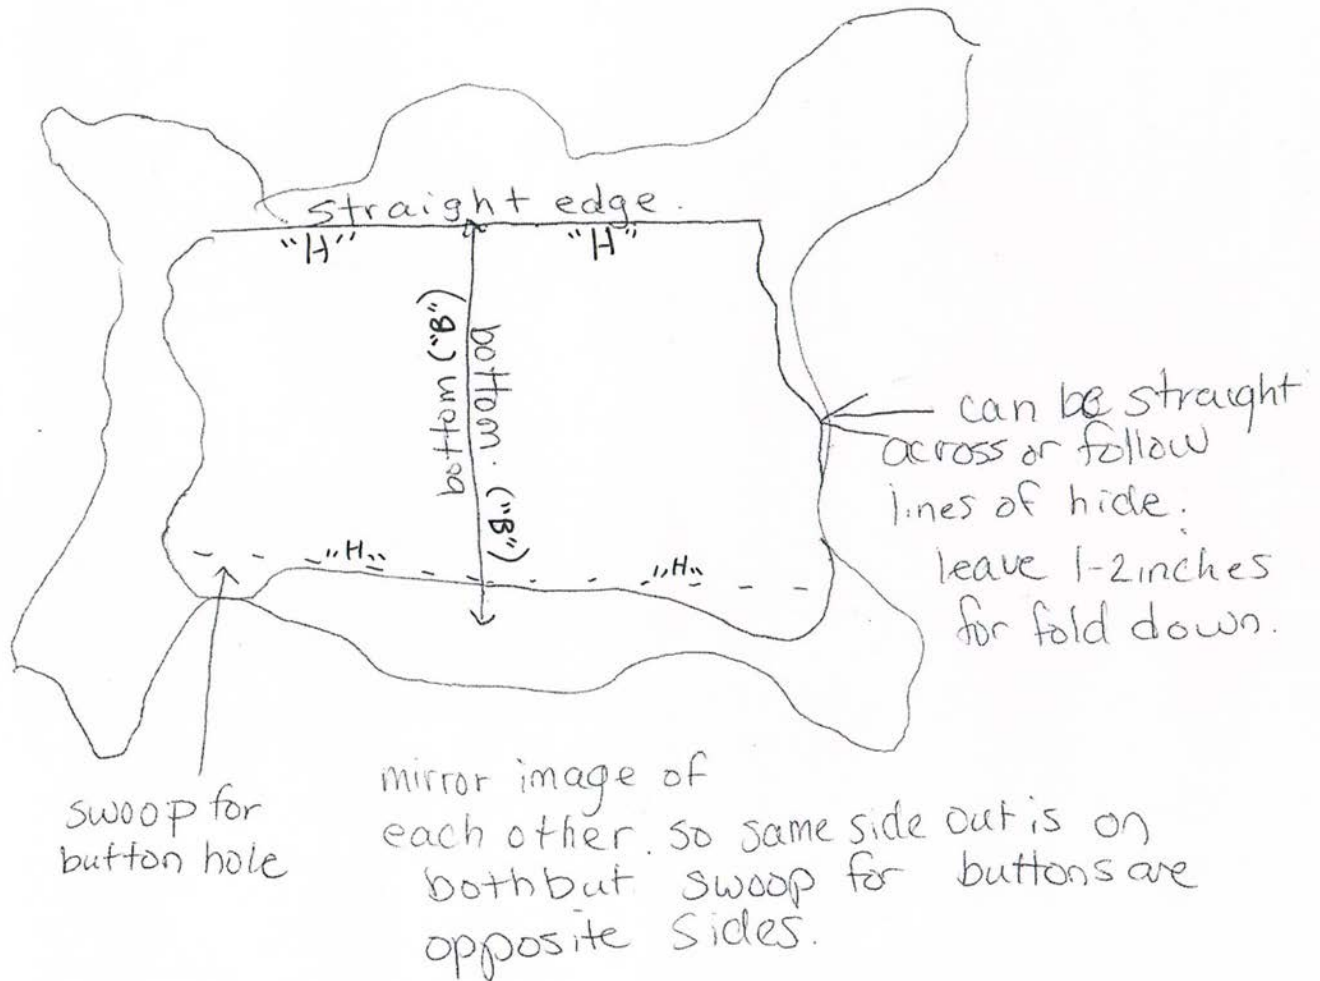 straight edge.
"H" "H"
bottom ("B")
bottom. ("B")
"H" "H"
can be straight
across or follow
lines of hide.
leave 1-2 inches
for fold down.
swoop for
button hole
mirror image of
each other. so same side out is on
both but swoop for buttons are
opposite sides.